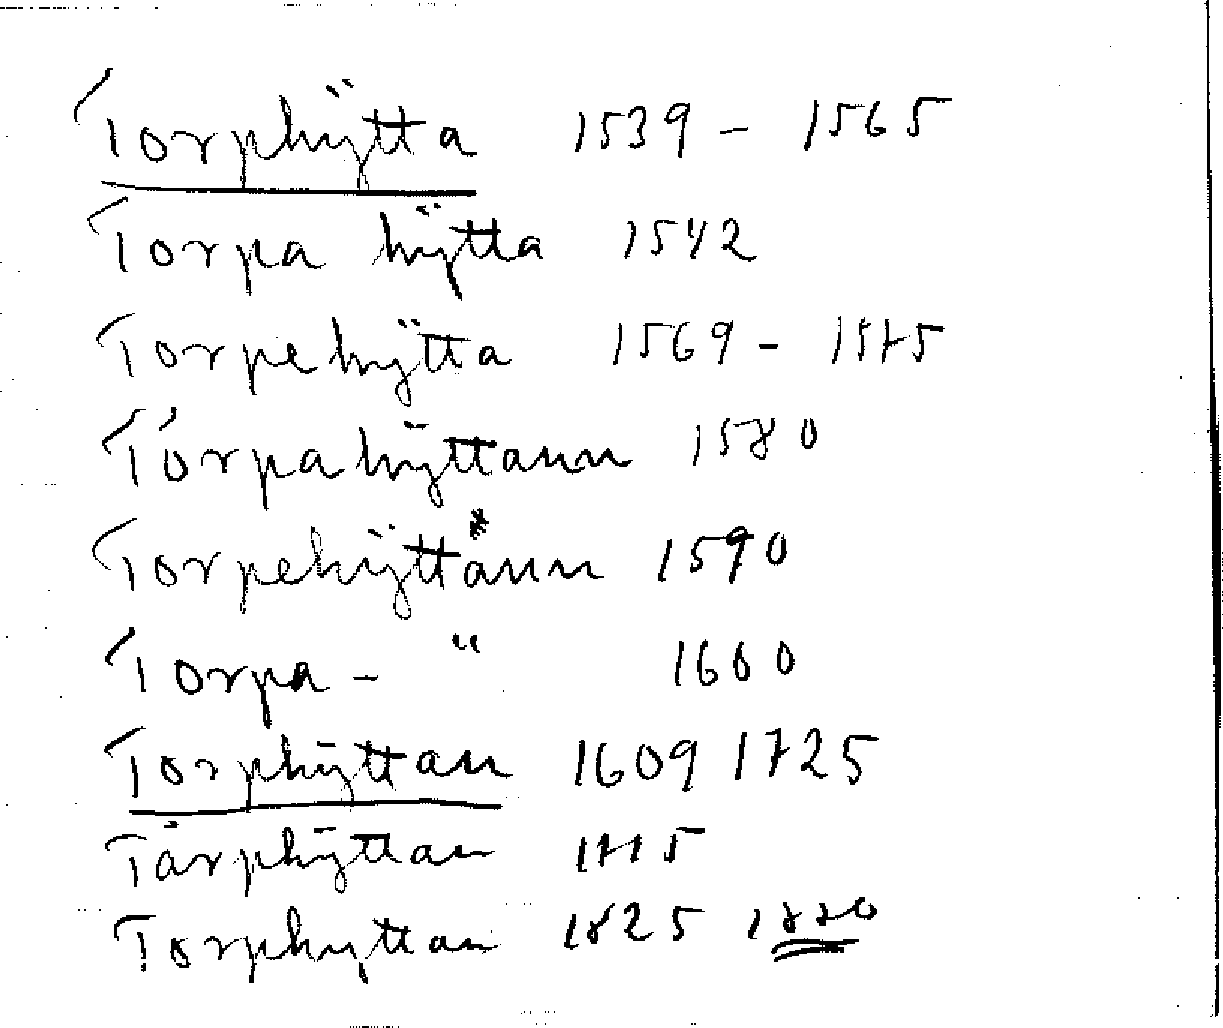 Torphÿtta 1539 - 1565
Torpa hÿtta 1542
Torpehÿtta 1569 - 1575
Torpahÿttann 1580
Torpehÿttånn* 1590
Torpa - " 1600
Torphÿttan 1609 1725
Tårphÿttan 1715
Torphyttan 1825